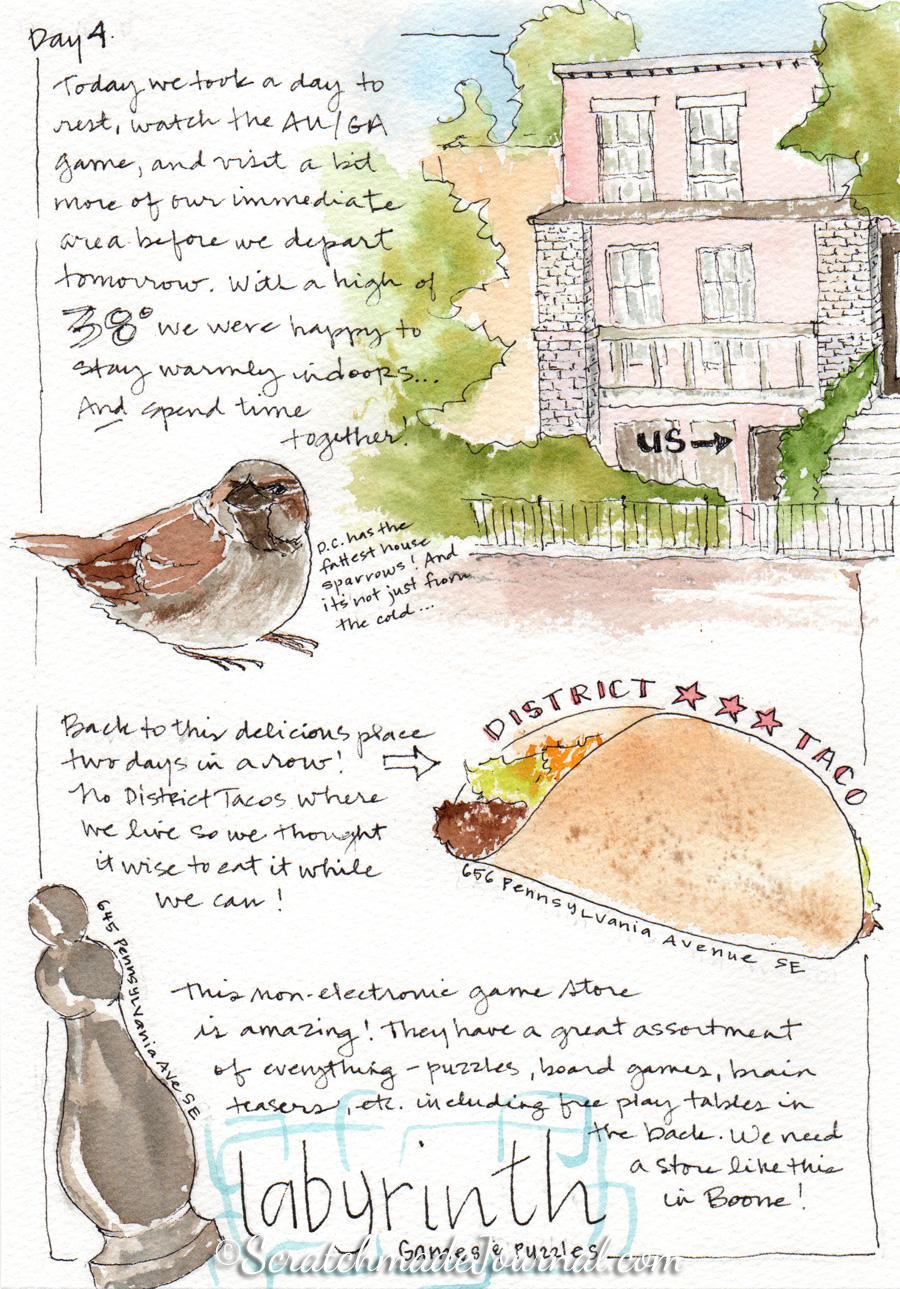 Day 4.
Today we took a day to
rest, watch the AU/GA
game, and visit a bit
more of our immediate
area before we depart
tomorrow. With a high of
38° we were happy to
stay warmly indoors...
And spend time
together!
US→
D.C. has the
fattest house
sparrows! And
it's not just from
the cold...
DISTRICT ★★★ TACO
Back to this delicious place
two days in a row!
No District Tacos where
we live so we thought
it wise to eat it while
we can!
656 Pennsylvania Avenue SE
645 Pennsylvania Ave SE
This non-electronic game store
is amazing! They have a great assortment
of everything - puzzles, board games, brain
teasers, etc. including free play tables in
the back. We need
a store like this
in Boone!
labyrinth
Games & Puzzles
©ScratchmadeJournal.com